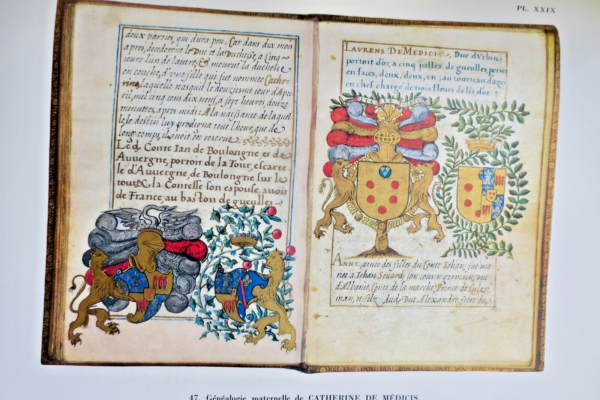 PL. XXIX
deux parties, qui dura peu. Car dans dix mois
apres, decederent le Duc et la Duchesse, a cinq
iours l'un de l'autre, & mourut la duchesse
en couche, d'une fille qui fut nommee Cathe-
rine, laquelle nasquit le douziesme iour d'Apu-
ril, mil cinq cens dix neuf, a sept heures, douze
minuttes, apres midi. A la naissance de laquel-
le, le destin luy prodigua tout l'heur, que de
long temps,
Le d. Conte Ian de Boulongne et de
Auvergne, portoit de la Tour, escarte
le d'Auvergne, de Boulongne sur le
tout. & la Contesse son espouse, avoit
de France, au baston de gueulles.
LAURENS DE MEDICIS, Duc d'Urbin,
portoit d'or, a cinq palles de gueulles
en faces, deux, deux, un, au tourteau d'azur
en chef, chargé de trois fleurs de lis d'or.
ANNE, ainee des filles du Conte Jehan, fut ma-
riee a Jehan Stuard son cousin germain, Duc
d'Albanie, Conte de la marche,
Duc Alexandre, frere du
47. Généalogie maternelle de CATHERINE DE MÉDICIS